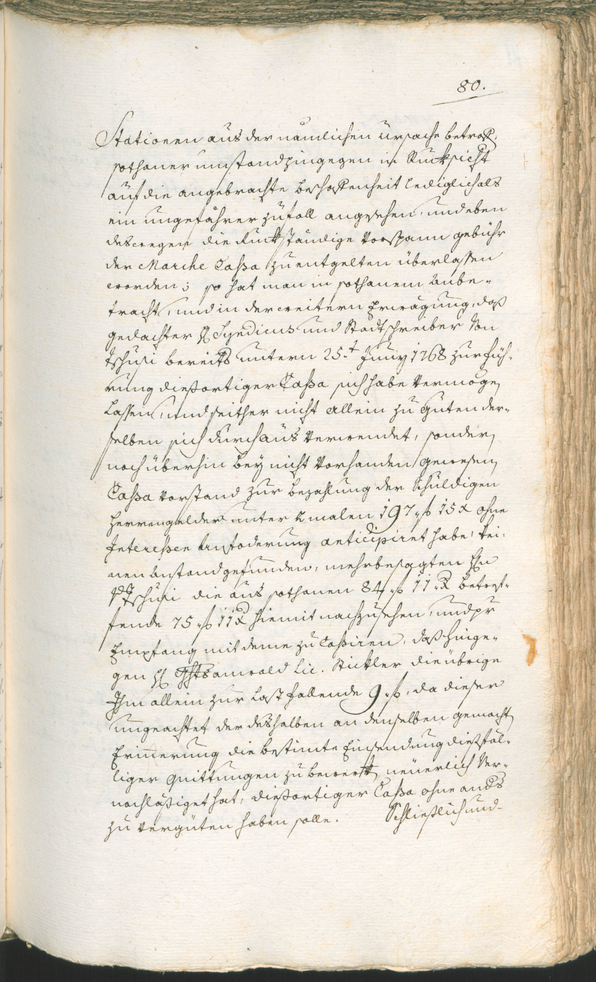 80.
Stationen aus der nämlichen Ursache betrof,
sothaner umstand hingegen in Rucksicht
auf die angebrachte beschaffenheit lediglich als
ein ungefährer zufall angesehen, und eben
deswegen die Ruckständige Vorspann gebühr
der Marche Cassa zu entgelten überlassen
worden; so hat man in sothanem Anbe-
tracht, und in der weitern Erwägung, daß
gedachter H. Syndicus und Stadtschreiber von
Tschusi bereits untern 25.t Juny 1768 zur Füh-
rung dießortiger Cassa sich habe vermögen
lassen, und seither nicht allein zu guten der-
selben sich durchaus verwendet, sondern
noch überhin bey nicht vorhanden gewesen
Cassa Vorstand zur bezahlung der schuldigen
Herrengelder unter 2 malen 197 f 15 x ohne
Interessen Anfoderung anticipiret habe, kei-
nen Anstand gefunden, mehrbesagten Hn
v. Tschusi die aus sothanen 84 f 11 x betref-
fende 75 f 11 x hiemit nachzusehen, und pr
Empfang mit deme zu Cassiren, daß hinge-
gen H. Ghtsanwald Lic. Stickler die übrige
Ihm allein zur Last fallende 9 f, da dieser
ungeachtet der deshalben an denselben gemacht
Erinnerung die bestimte Einsendung dießfäl-
liger Quittungen zu bewerk neuerlich ver-
nachläßiget hat, dießortiger Cassa ohne anders
zu vergüten haben solle. Schließlich und